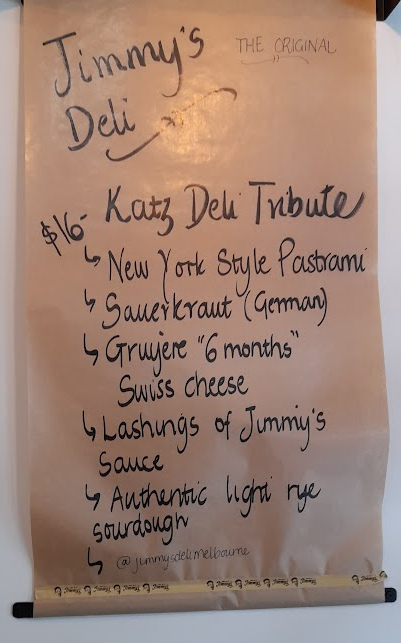 Jimmy's
THE ORIGINAL
Deli
Katz Deli Tribute
$16-
↳ New York Style Pastrami
↳ Sauerkraut (German)
↳ Gruyere "6 months"
Swiss cheese
↳ Lashings of Jimmy's
Sauce
↳ Authentic light rye
sourdough
↳ @jimmysdelimelbourne